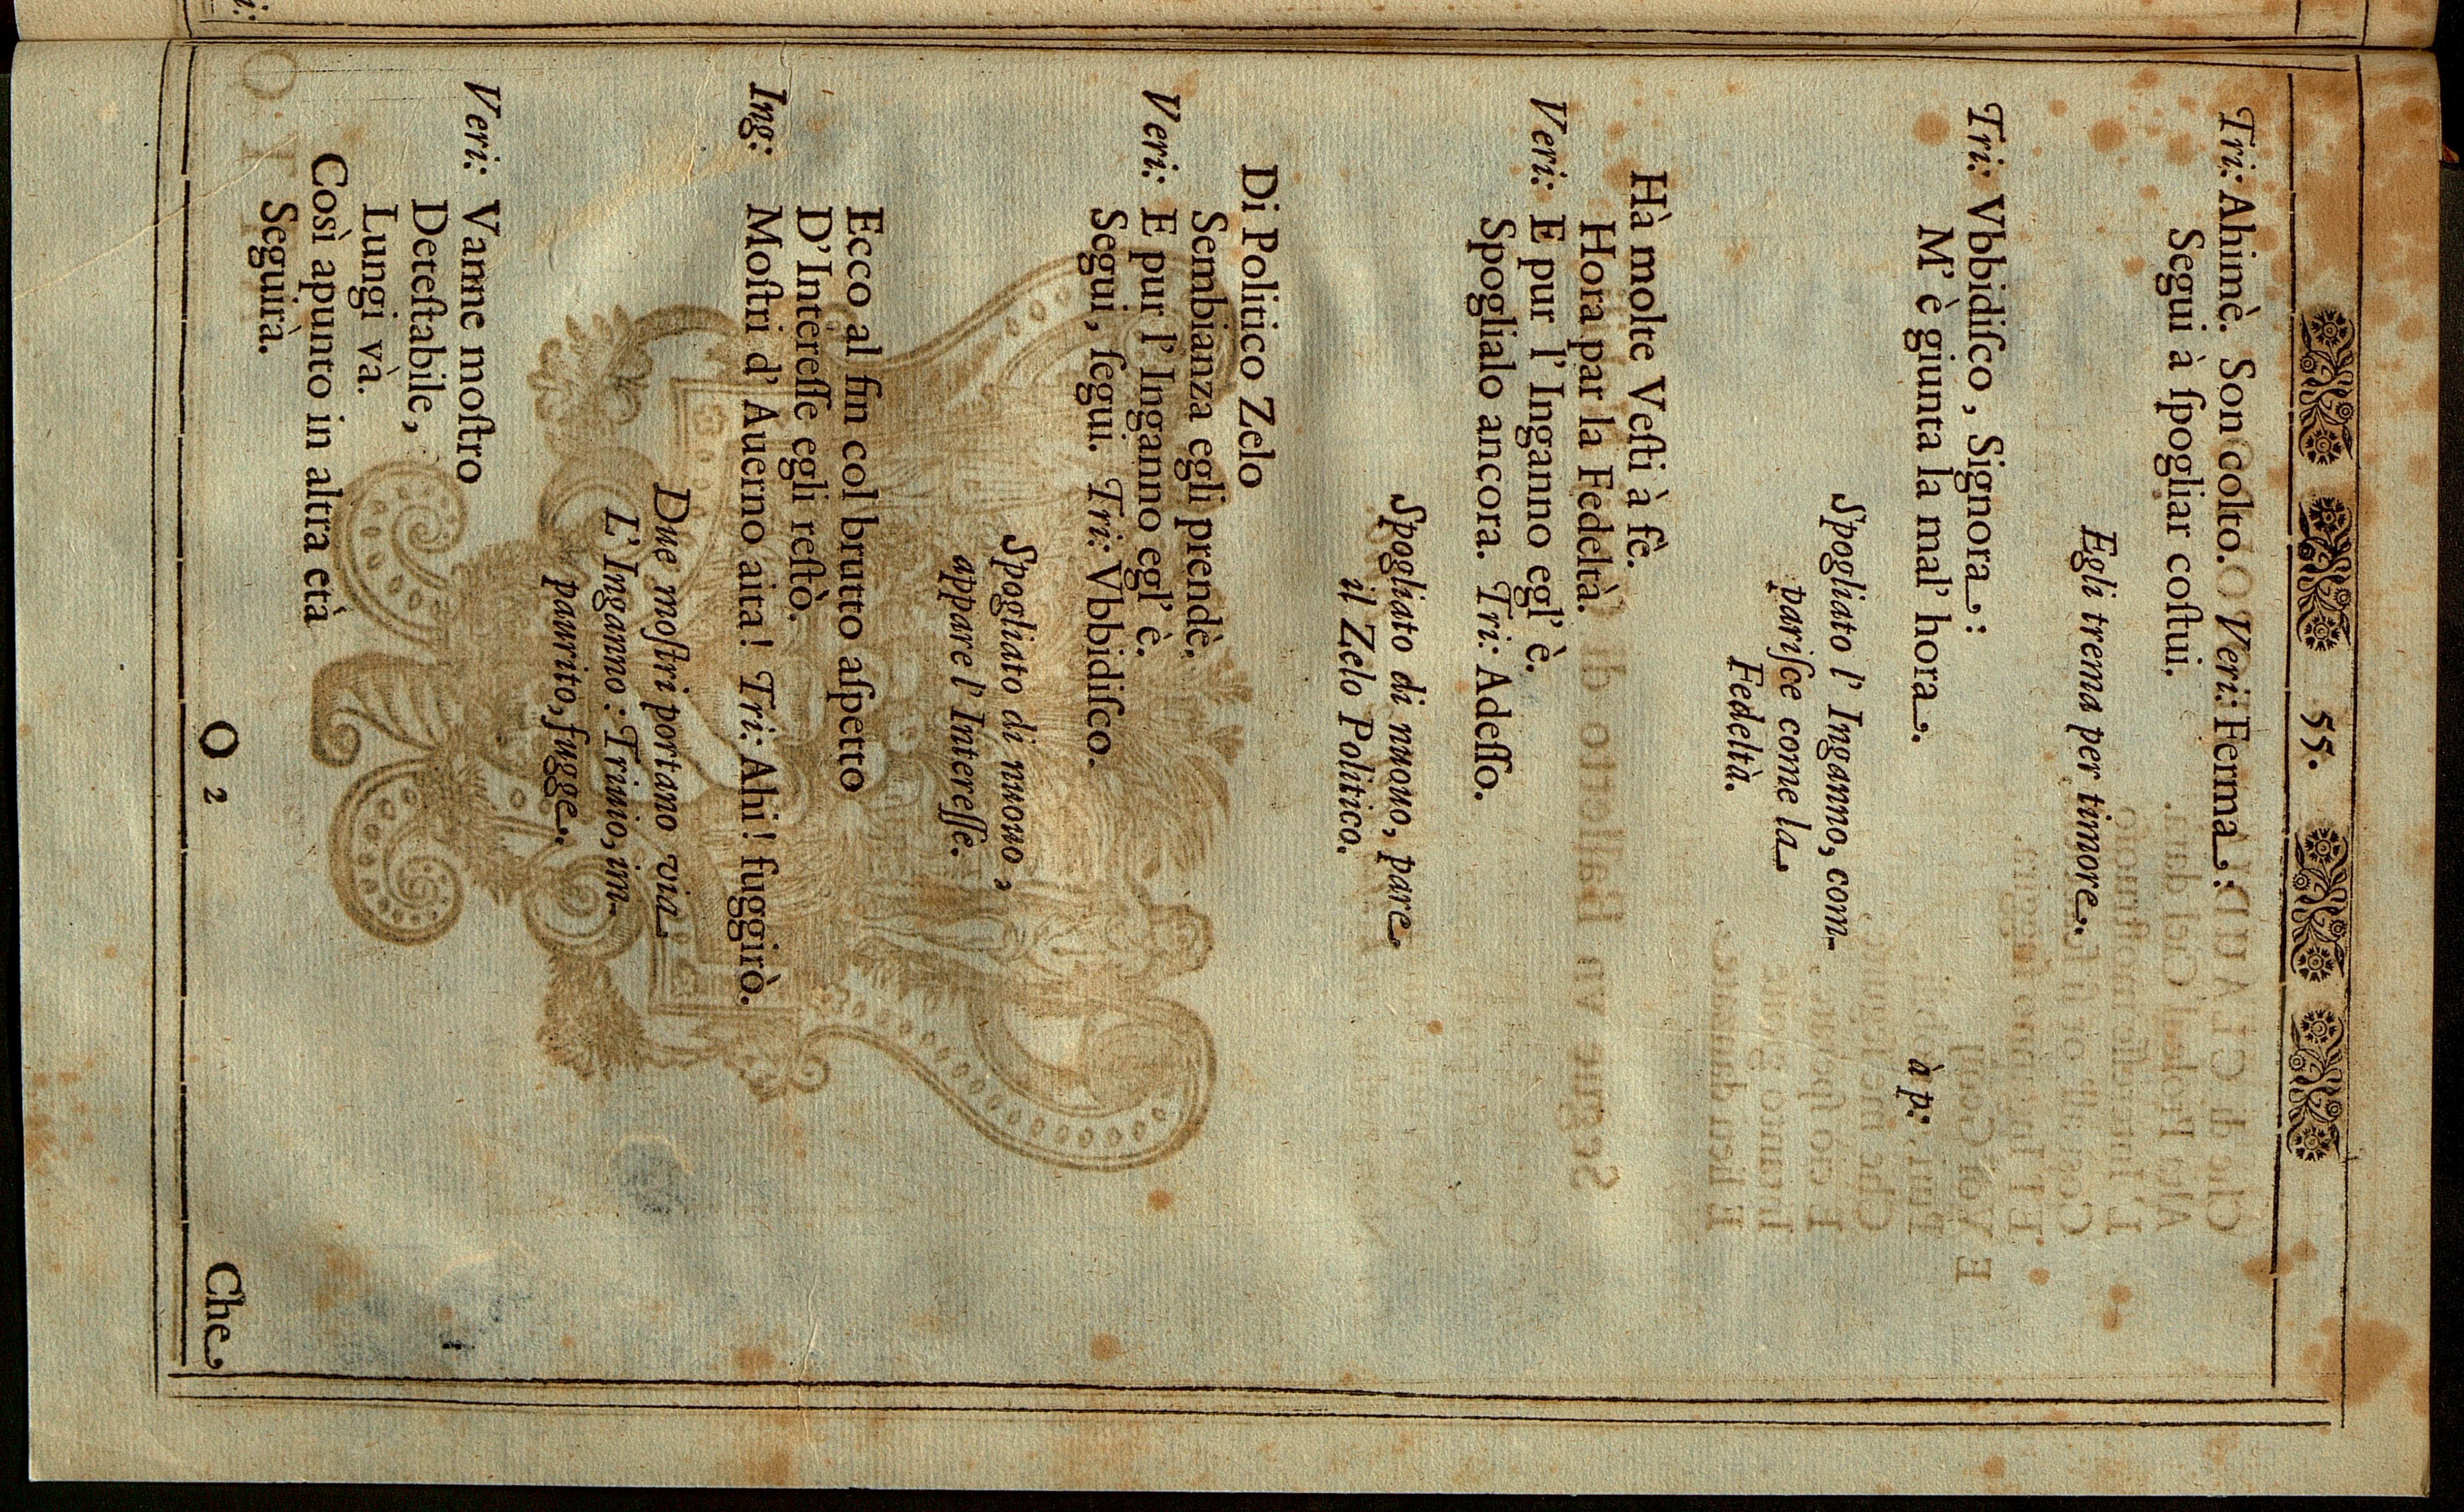 55.
Tri: Ahimè. Son colto. Veri: Ferma:
Segui à ſpogliar coſtui.
Egli trema per timore.
Tri: Vbbidiſco, Signora:
M' è giunta la mal' hora. à p:
Spogliato l' Inganno, com-
pariſce come la
Fedeltà.
Hà molte Veſti à fè.
Hora par la Fedeltà.
Veri: E pur l' Inganno egl' è.
Spoglialo ancora. Tri: Adeſſo.
Spogliato di nuouo, pare
il Zelo Politico.
Di Politico Zelo
Sembianza egli prendè.
Veri: E pur l' Inganno egl' è.
Segui, ſegui. Tri: Vbbidiſco.
Spogliato di nuouo,
appare l' Intereſſe.
Ecco al fin col brutto aſpetto
D' Intereſſe egli reſtò.
Ing: Moſtri d' Auerno aita! Tri: Ahi! fuggirò.
Due moſtri portano via
L' Inganno: Triuio, im-
paurito, fugge.
Veri: Vanne moſtro
Deteſtabile,
Lungi và.
Così apunto in altra età
Seguirà.
O 2 Che